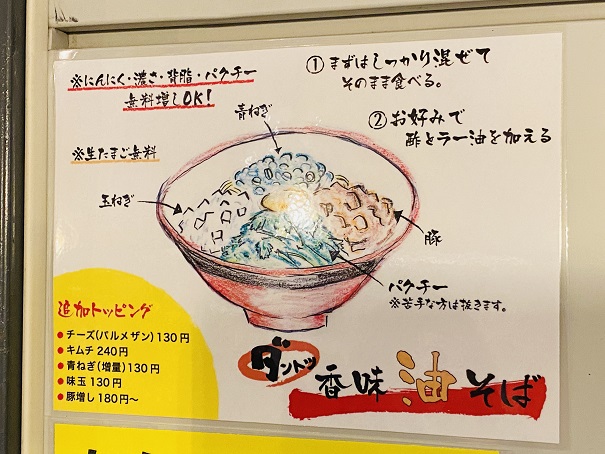 ※にんにく・濃さ・背脂・パクチー
無料増しOK!
① まずはしっかり混ぜて
そのまま食べる。
② お好みで
酢とラー油を加える
※生たまご無料
青ねぎ
玉ねぎ
豚
パクチー
※苦手な方は抜きます。
追加トッピング
●チーズ(パルメザン)130円
●キムチ 240円
●青ねぎ(増量)130円
●味玉 130円
●豚増し 180円〜
ダントツ
香味油そば